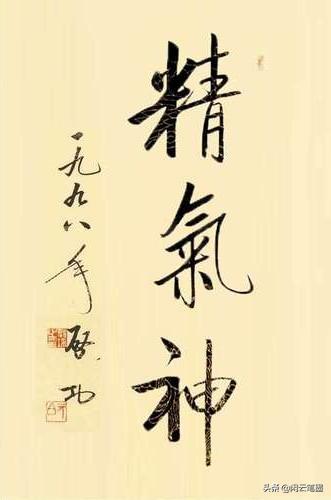 精氣神
一九九八年 啓功
头条@闲云笔圈